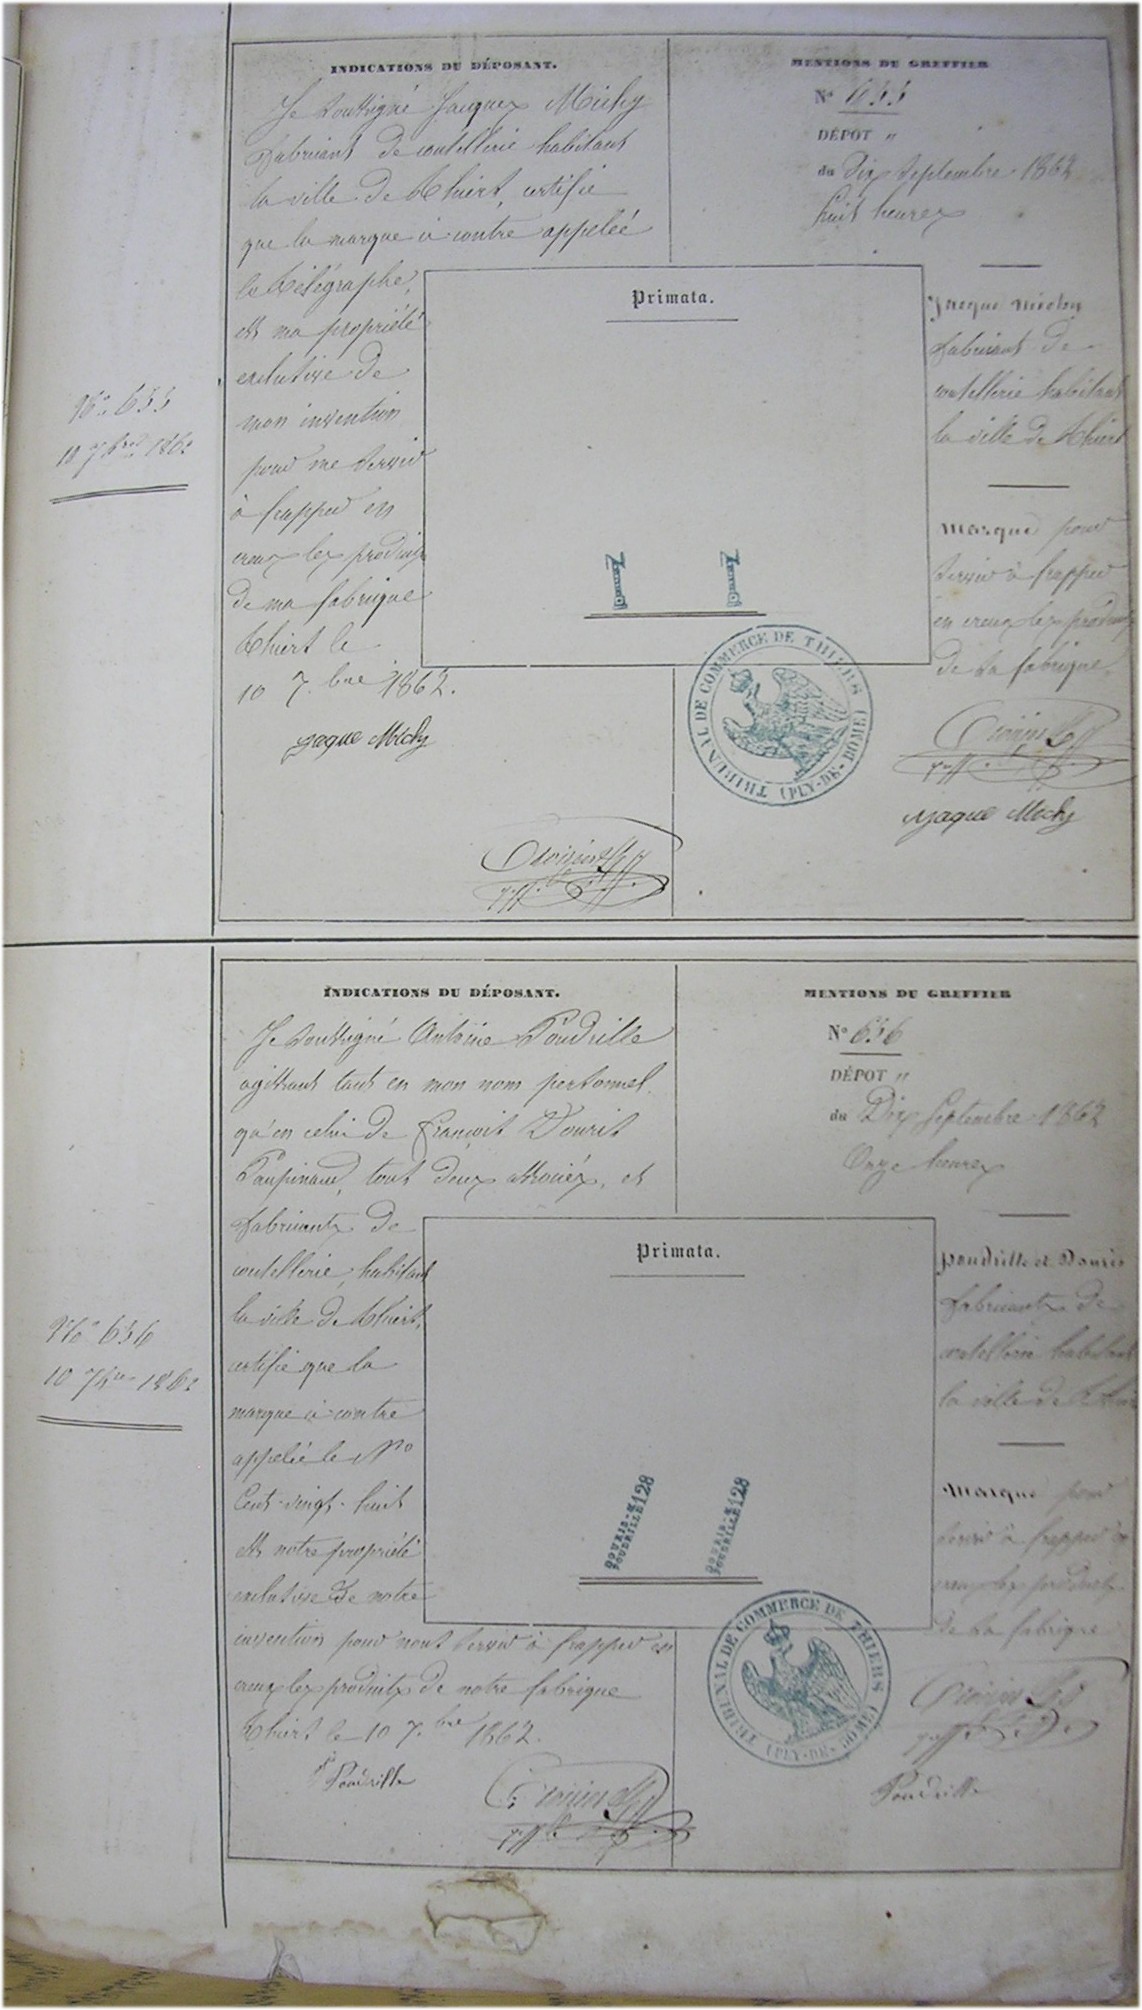 INDICATIONS DU DÉPOSANT.
Je soussigné Jacques Michy
fabricant de coutellerie habitant
la ville de Thiers, certifie
que la marque ci contre appeleé
le Télégraphe,
est ma propriété
exclusive de
mon invention
pour me servir
à frapper en
creux les produits
de ma fabrique
Thiers le
10 7.bre 1862.
jaque Michy
MENTIONS DU GREFFIER
N° 655
DÉPOT "
du Dix Septembre 1862
huit heures
Primata.
Jacque Michy
fabricant de
coutellerie habitant
la ville de Thiers
Marque pour
servir à frapper
en creux les produits
de sa fabrique.
TRIBUNAL DE COMMERCE DE THIERS
(PUY-DE-DOME)
jaque Michy
No 655
10 7bre 1862
INDICATIONS DU DÉPOSANT.
Je soussigné Antoine Poudrille
agissant tant en mon nom personnel
qu'en celui de françois Douris
tout deux associés, et
fabricants de
coutellerie, habitant
la ville de Thiers,
certifie que la
marque ci-contre
appelée le No
Cent-vingt-huit
est notre propriété
exclusive de notre
invention pour nous servir à frapper en
creux les produits de notre fabrique
Thiers le 10 7.bre 1862.
Poudrille
MENTIONS DU GREFFIER
N° 656
DÉPOT "
du Dix Septembre 1862
Onze heures
Primata.
DOURIS- 128
POUDRILLE
DOURIS- 128
POUDRILLE
Poudrille et Douris
fabricants de
coutellerie habitant
la ville de Thiers
Marque pour
servir à frapper en
creux les produits
de sa fabrique
TRIBUNAL DE COMMERCE DE THIERS
(PUY-DE-DOME)
Poudrille
No 656
10 7bre 1862